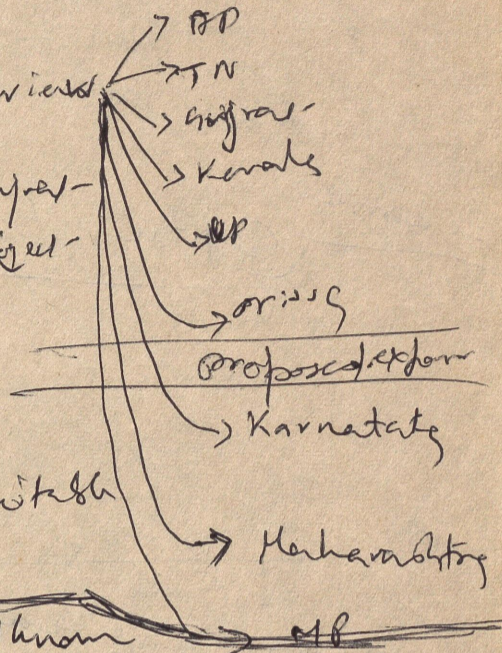 AP
TN
Gujrat
Kerala
UP
Orissa
Proposed expan
Karnataka
Maharashtra
known MP